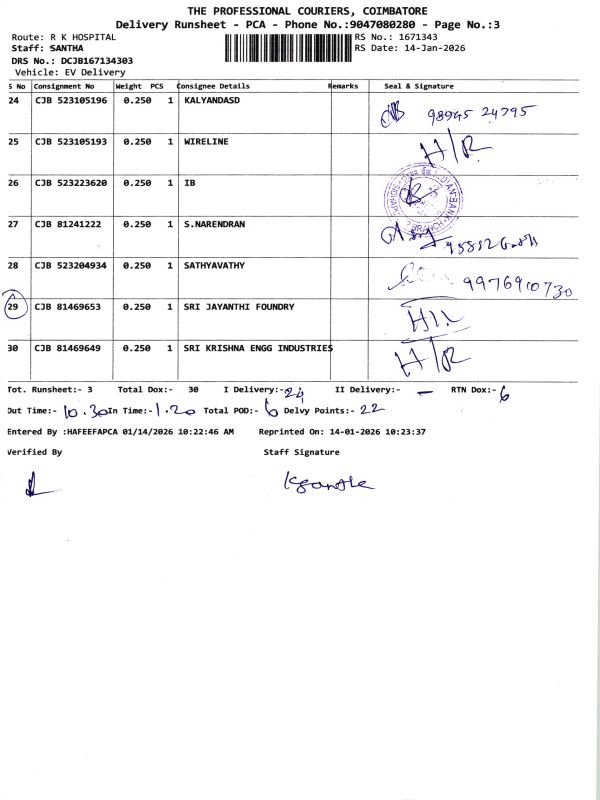 THE PROFESSIONAL COURIERS, COIMBATORE
Delivery Runsheet - PCA - Phone No.:9047080280 - Page No.:3
Route: R K HOSPITAL RS No.: 1671343
Staff: SANTHA RS Date: 14-Jan-2026
DRS No.: DCJB167134303
Vehicle: EV Delivery
S No Consignment No Weight PCS Consignee Details Remarks Seal & Signature
24 CJB 523105196 0.250 1 KALYANDASD 98945 24795
25 CJB 523105193 0.250 1 WIRELINE H/R
26 CJB 523223620 0.250 1 IB
27 CJB 81241222 0.250 1 S.NARENDRAN
28 CJB 523204934 0.250 1 SATHYAVATHY 9976910730
29 CJB 81469653 0.250 1 SRI JAYANTHI FOUNDRY
30 CJB 81469649 0.250 1 SRI KRISHNA ENGG INDUSTRIES H/R
Tot. Runsheet:- 3 Total Dox:- 30 I Delivery:- 24 II Delivery:- — RTN Dox:- 6
Out Time:- 10.30 In Time:- 1.20 Total POD:- 6 Delvy Points:- 22
Entered By :HAFEEFAPCA 01/14/2026 10:22:46 AM Reprinted On: 14-01-2026 10:23:37
Verified By Staff Signature